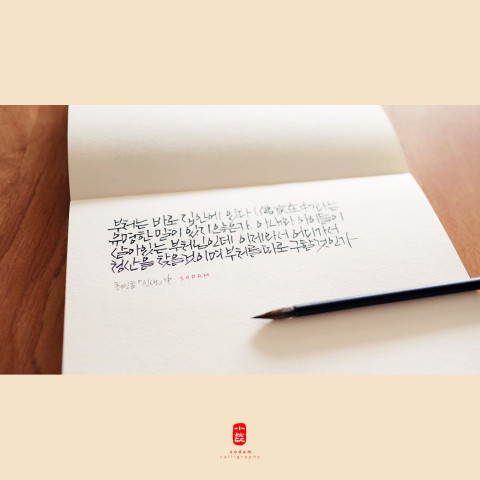 부처는 바로 집안에 있다
유명한 말이 있지 않은가. 아내와 아이들이
살아있는 부처님인데 이제와서 어디가서
청산을 찾을것이며 부처를 따로 구할것인가
최인호 「인생」 · SODAM
sodam
calligraphy